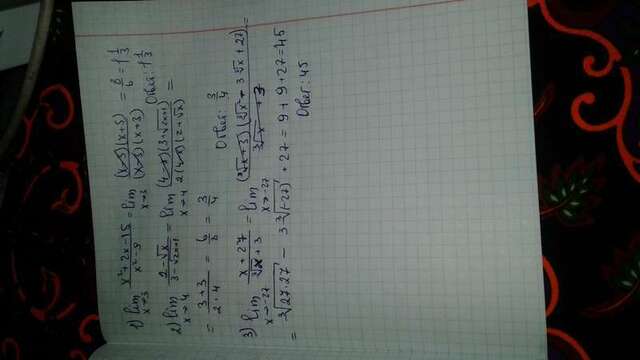 1) lim x→3 (x²+2x-15)/(x²-9) = lim x→3 ((x-3)(x+5))/((x-3)(x+3)) = 8/6 = 1 1/3
Ответ: 1 1/3
2) lim x→4 (2-√x)/(3-√(2x+1)) = lim x→4 ((4-x)(3+√(2x+1)))/(2(4-x)(2+√x)) =
= (3+3)/(2·4) = 6/8 = 3/4
Ответ: 3/4
3) lim x→-27 (x+27)/(∛x+3) = lim x→-27 ((∛x+3)(∛x²-3∛x+27))/(∛x+3) =
= ∛(27·27) - 3∛(-27) + 27 = 9+9+27=45
Ответ: 45